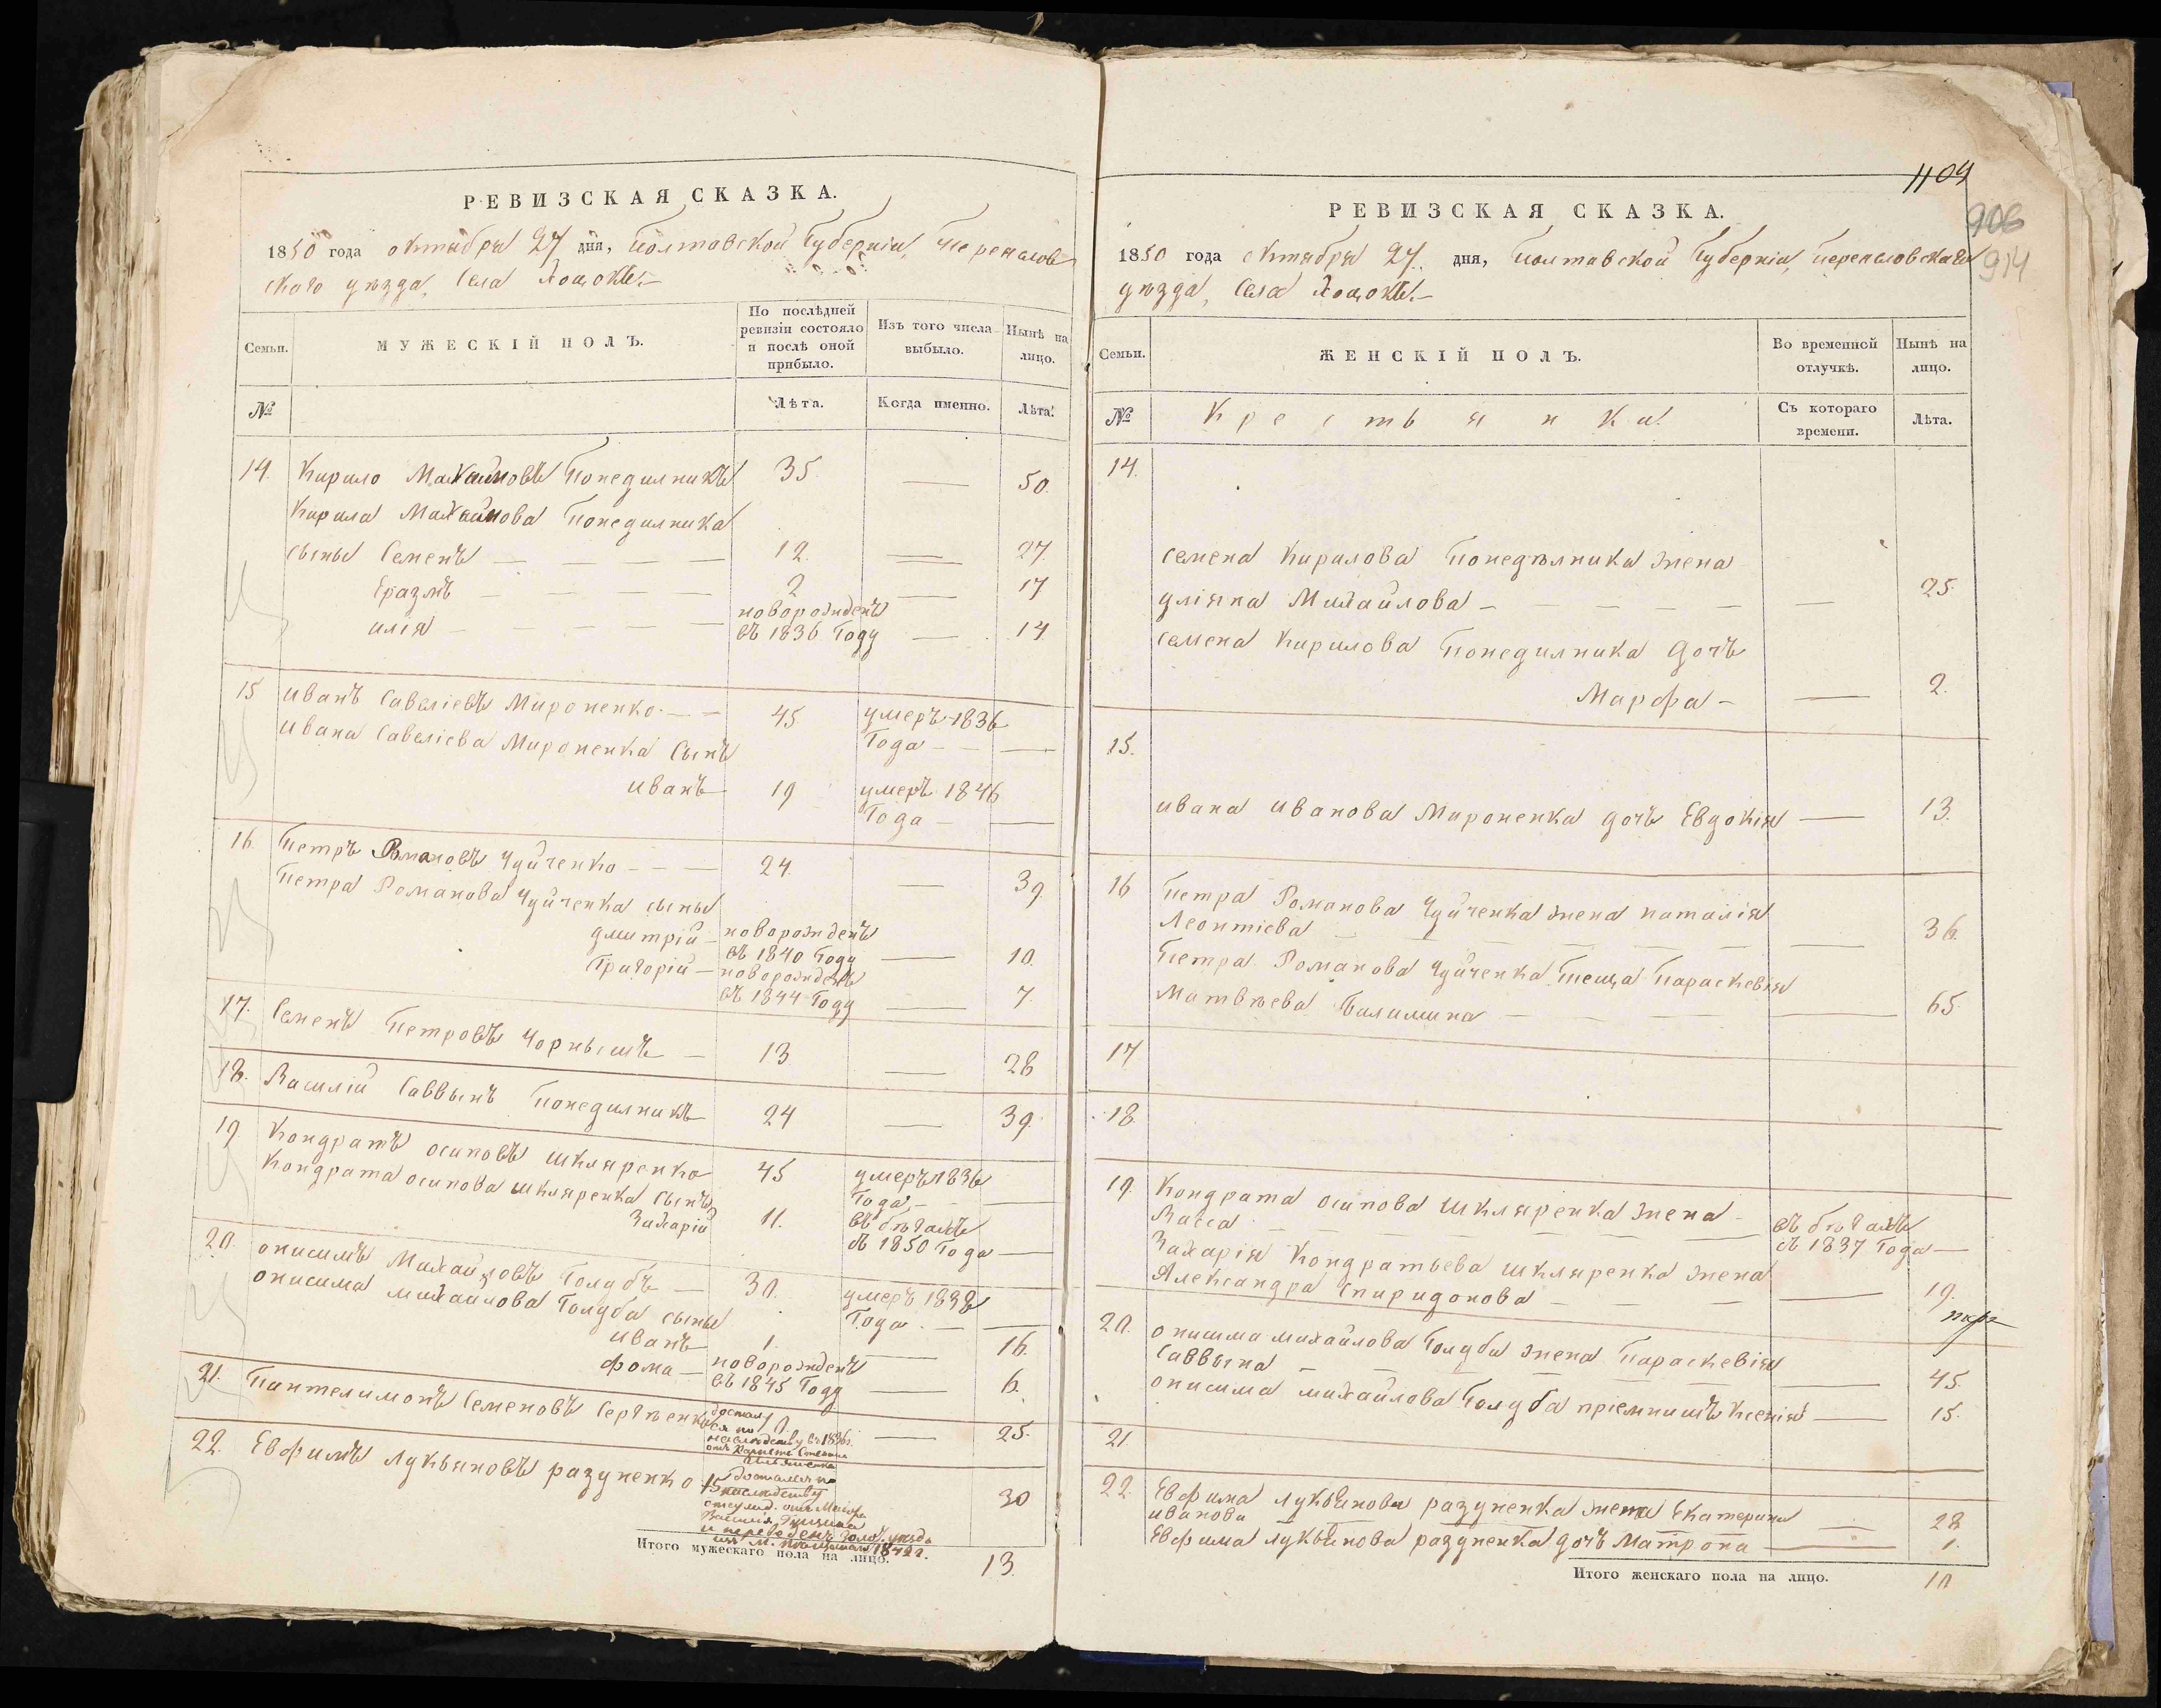 РЕВИЗСКАЯ СКАЗКА.
1850 года октября 27 дня, Полтавской Губерніи, Переяслов-
скаго уѣзда, Села Хоцокъ.–
Семьи.
МУЖЕСКІЙ ПОЛЪ.
По послѣдней ревизіи состояло и послѣ оной прибыло.
Изъ того числа выбыло.
Нынѣ на лицо.
№
Лѣта.
Когда именно.
Лѣта.
14. Кирило Михайловъ Понедилникъ 35 — 50.
Кирила Михайлова Понедилника
сыны Семенъ — 12. — 27.
Еразмъ — 2 — 17
новорожденъ
илія — въ 1836 Году — 14
15 иванъ Савеліевъ Мироненко. — 45 умеръ 1836
Года — —
ивана Савеліева Мироненка Сынъ
иванъ 19 умеръ 1846
Года — —
16. Петръ Романовъ Чуйченко — 24. — 39.
Петра Романова Чуйченка сыны
дмитрій — новорожденъ
въ 1840 Году — 10.
Григорій — новорожденъ
въ 1844 Году — 7.
17. Семенъ Петровъ Чорнышъ — 13 — 28
18. Василій Саввынъ Понедилникъ 24 — 39.
19. Кондратъ осиповъ шкляренко 45 умеръ 1836
Года, — —
Кондрата осипова шкляренка сынъ
Захарій 11. въ бѣгахъ
съ 1850 Года —
20. онисимъ Михайловъ Голубъ — 30. умеръ 1838
Года. — —
онисима михайлова Голуба сыны
иванъ 1. — 16.
фома — новорожденъ
въ 1845 Году — 6.
21. Пантелимонъ Семеновъ Сергѣенко
достал
ся по 10.
наследству въ 1836г. — 25.
22. Евфимъ Лукьяновъ разуненко 15 достался по
наследству
от Маіора
Василія
и переведенъ Золот. уѣзда
изъ м. 1842 г. 30
Итого мужескаго пола на лицо. 13.
1104
906
914
РЕВИЗСКАЯ СКАЗКА.
1850 года октября 27. дня, Полтавской Губерніи, Переясловскаго
уѣзда, Села Хоцокъ.–
Семьи.
ЖЕНСКІЙ ПОЛЪ.
Во временной отлучкѣ.
Нынѣ на лицо.
№
Крестьянки.
Съ котораго времени.
Лѣта.
14.
семена Кирилова Понедѣлника жена
уліяна Михайлова — — 25.
семена Кирилова Понедилника дочъ
Марфа — — 2.
15.
ивана иванова Мироненка дочъ Евдокія — 13.
16 Петра Романова Чуйченка жена наталія
Леонтіева — — 36.
Петра Романова Чуйченка теща Параскевія
Матвѣева — — 65.
17
18.
19. Кондрата осипова Шкляренка жена
Васса — въ бѣгахъ
съ 1837 Года —
Захарія Кондратьева шкляренка жена
Александра Спиридонова — — 19.
20. онисима михайлова Голуба жена Параскевія
Саввына — — 45.
онисима михайлова Голуба пріемнишъ Ксенія — 15.
21
22. Евфима Лукьянова разуненка жена Екатерина
иванова — — 28
Евфима Лукьянова разуненка дочъ Матрона — 1.
Итого женскаго пола на лицо. 10